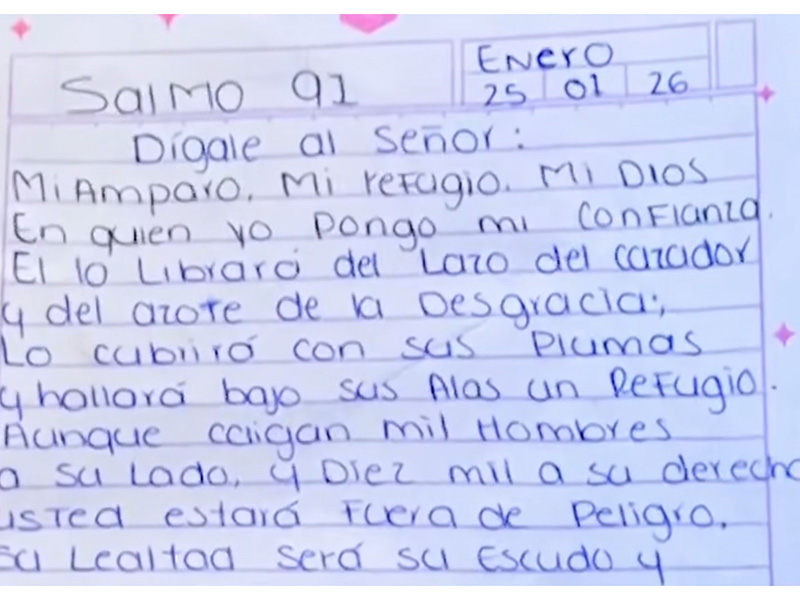 Salmo 91
Enero
25 01 26
Dígale al Señor:
Mi Amparo. Mi refugio. Mi Dios
En quien yo Pongo mi Confianza.
El lo Librará del Lazo del cazador
y del azote de la Desgracia;
Lo cubrirá con sus Plumas
y hallará bajo sus Alas un Refugio.
Aunque caigan mil Hombres
a su Lado, y Diez mil a su derecha
usted estará Fuera de Peligro.
su Lealtad será su Escudo y